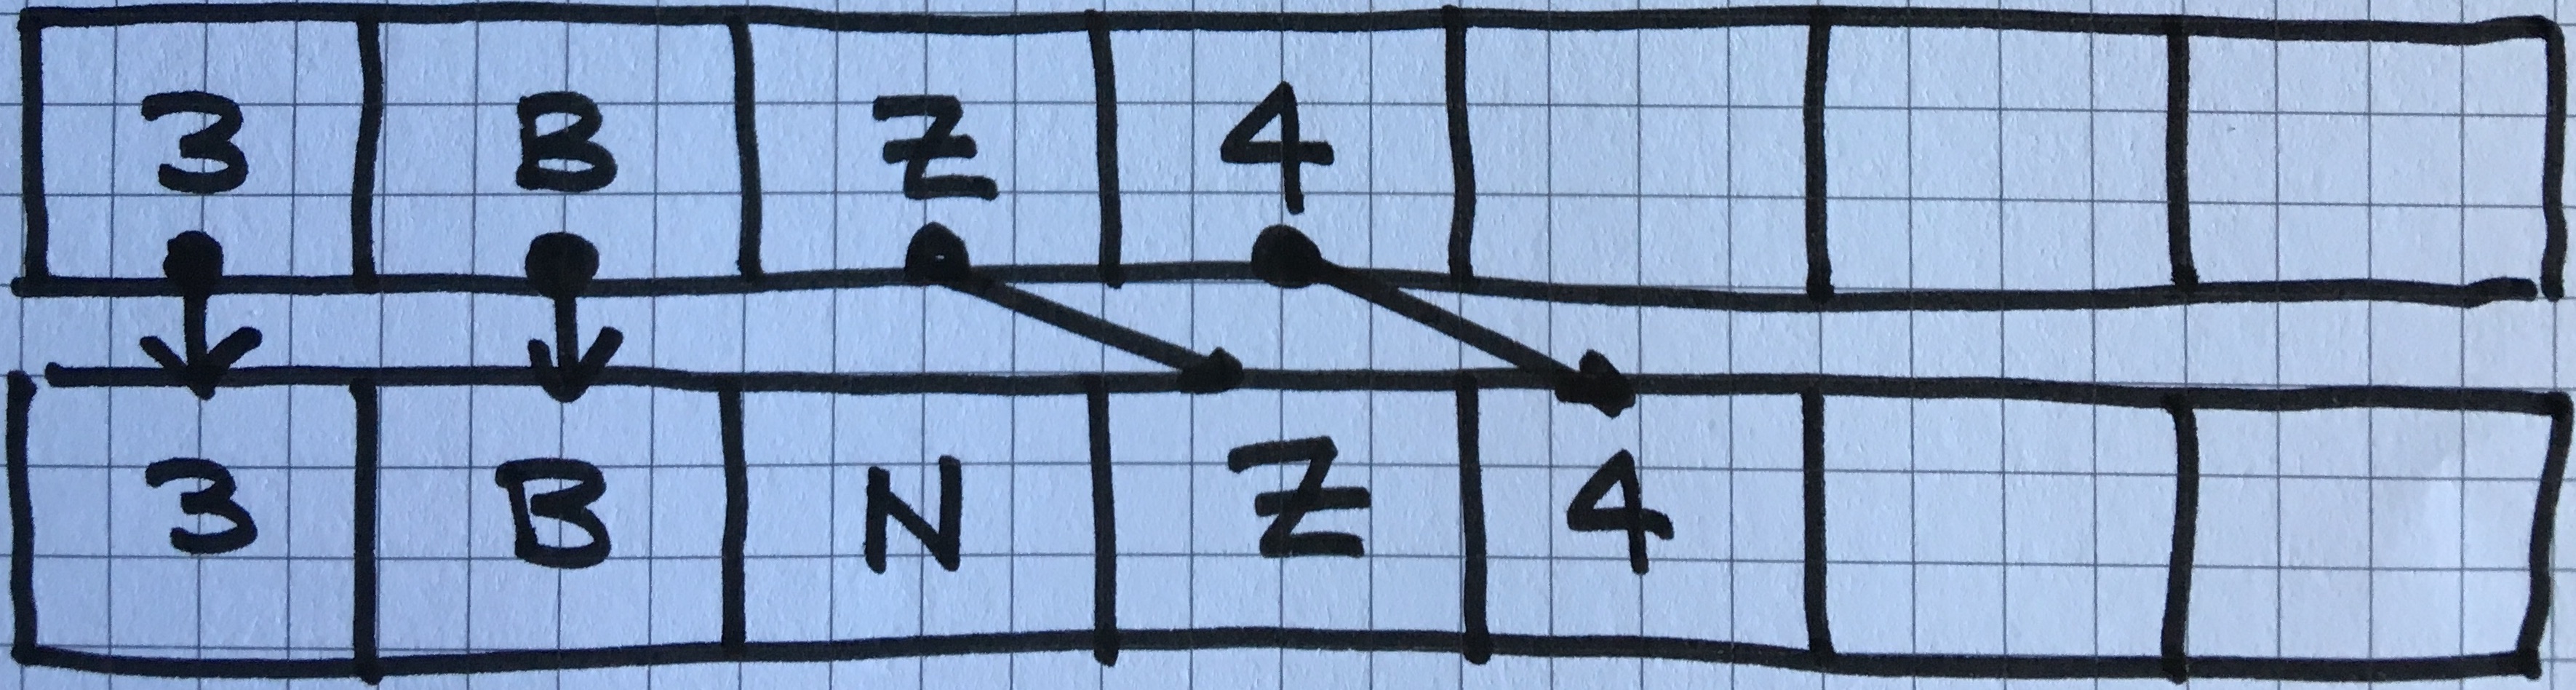 3 B Z 4
3 B N Z 4